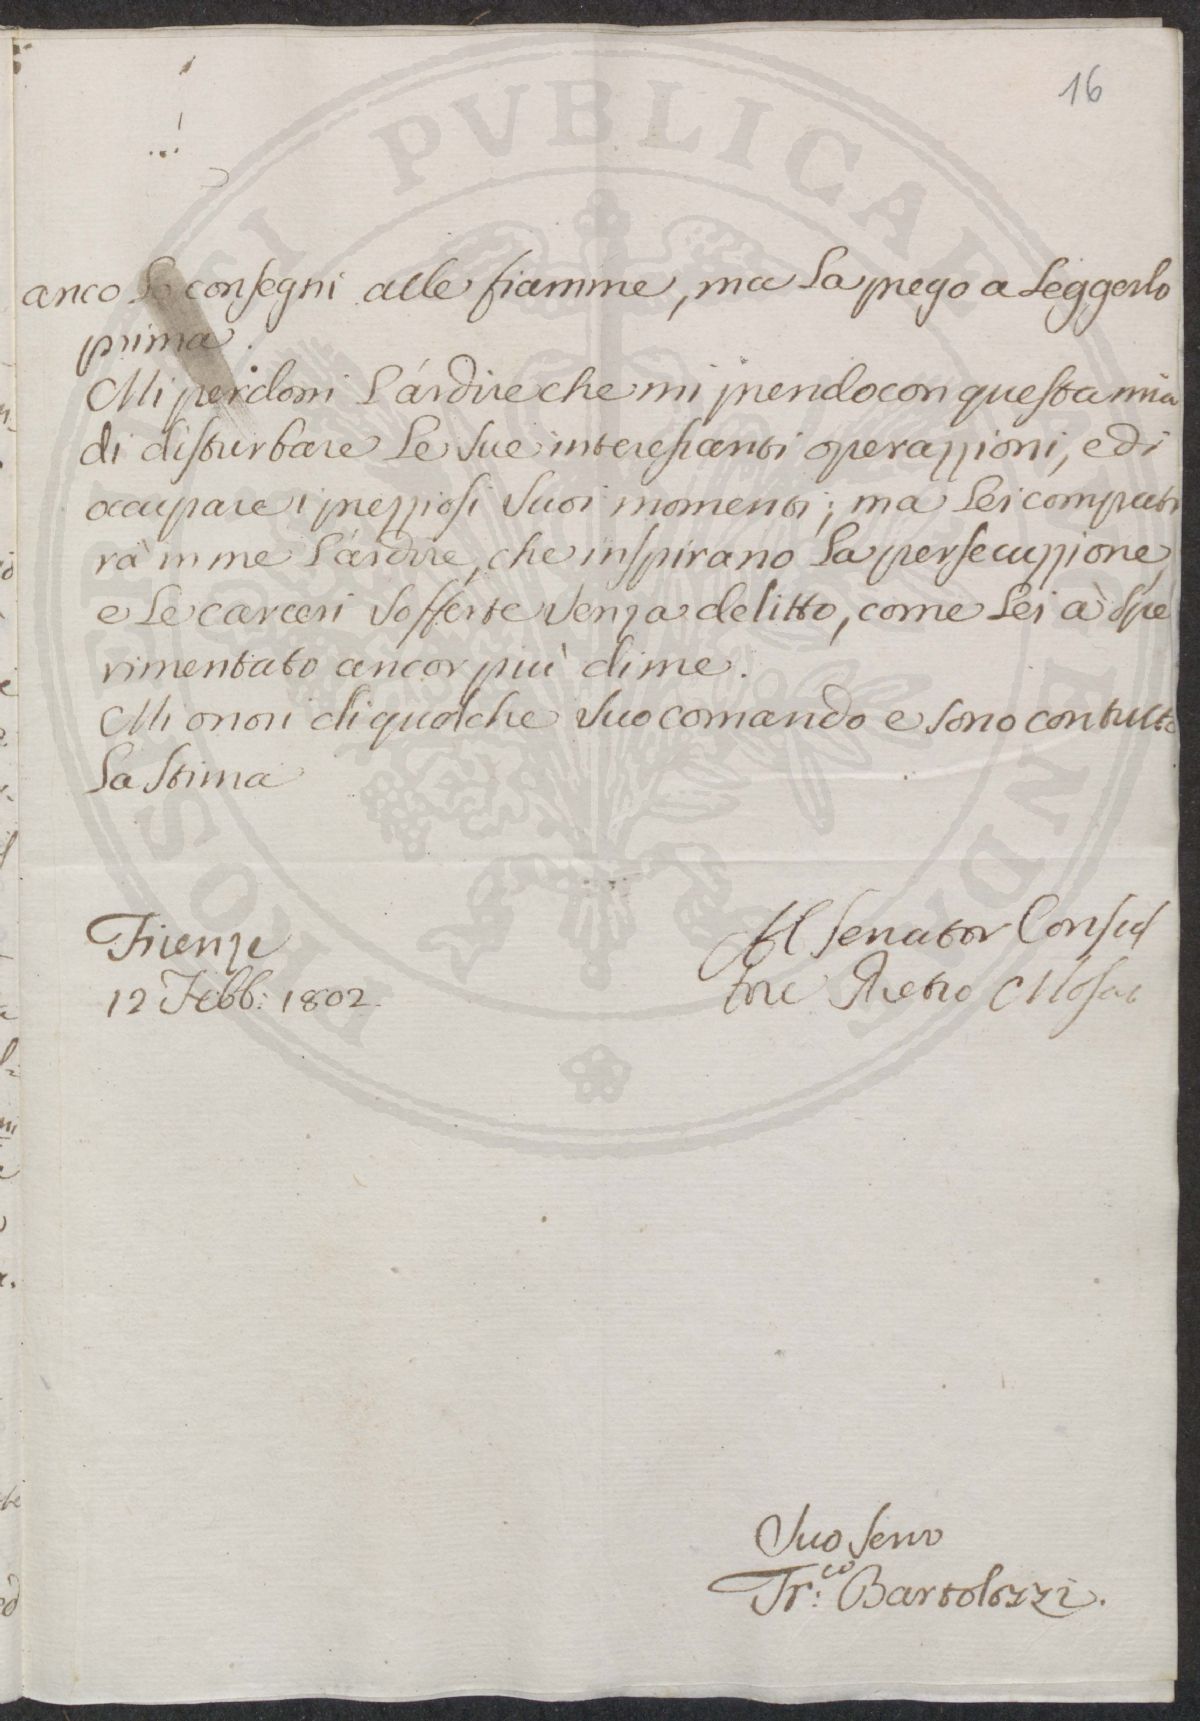 16
anco lo consegni alle fiamme, ma la prego a leggerlo
prima.
Mi perdoni l'ardire che mi prendo con questa mia
di disturbare le sue interessanti operazzioni, e di
occupare i prezziosi suoi momenti; ma lei compati
rà in me l'ardire, che inspirano la persecuzzione,
e le carceri sofferte senza delitto, come lei à spe
rimentato ancor più di me.
Mi onori di qualche suo comando e sono con tutta
la stima
Firenze
12 Febb: 1802.
Al Senator Consul
tore Pietro Moscat
Suo Servo
Fr:co Bartolozzi.